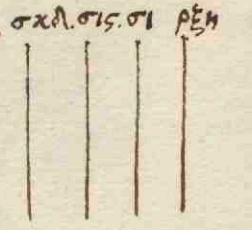 σκδ. σιϛ. σι ρξη